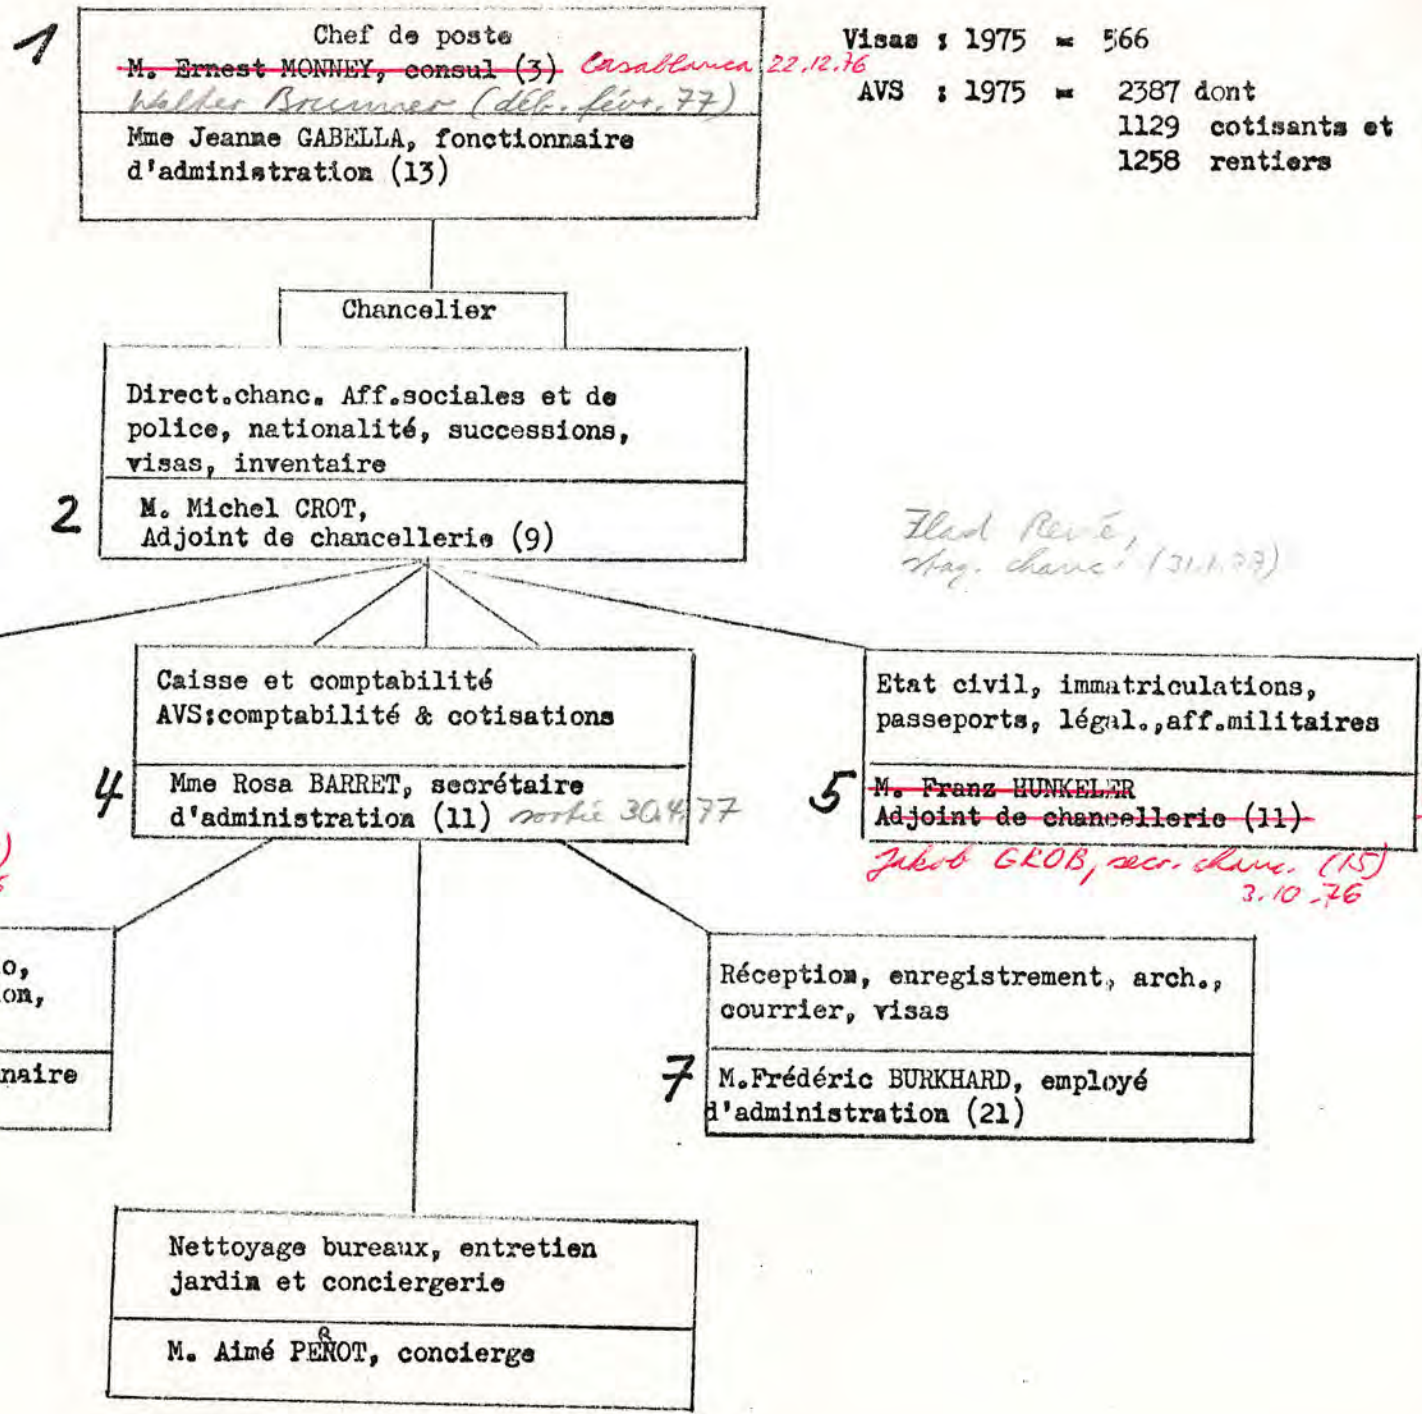 1
Chef de poste
M. Ernest MONNEY, consul (3) Casablanca 22.12.76
Walter Brunner (déb. févr. 77)
Mme Jeanne GABELLA, fonctionnaire
d'administration (13)
Visas : 1975 = 566
AVS : 1975 = 2387 dont
1129 cotisants et
1258 rentiers
Chancelier
Direct.chanc. Aff.sociales et de
police, nationalité, successions,
visas, inventaire
2
M. Michel CROT,
Adjoint de chancellerie (9)
René,
stag. chanc. (31.1.77)
Caisse et comptabilité
AVS:comptabilité & cotisations
4
Mme Rosa BARRET, secrétaire
d'administration (11) sortie 30.4.77
Etat civil, immatriculations,
passeports, légal.,aff.militaires
5
M. Franz HUNKELER
Adjoint de chancellerie (11)
Jakob GROB, secr. chanc. (15)
3.10.76
o,
on,
naire
Réception, enregistrement, arch.,
courrier, visas
7
M.Frédéric BURKHARD, employé
d'administration (21)
Nettoyage bureaux, entretien
jardin et conciergerie
M. Aimé PEROT, concierge